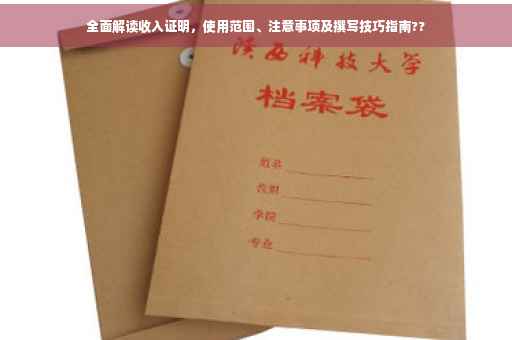 全面解读收入证明，使用范围、注意事项及撰写技巧指南??
陕西科技大学
档案袋
姓名
学院
专业